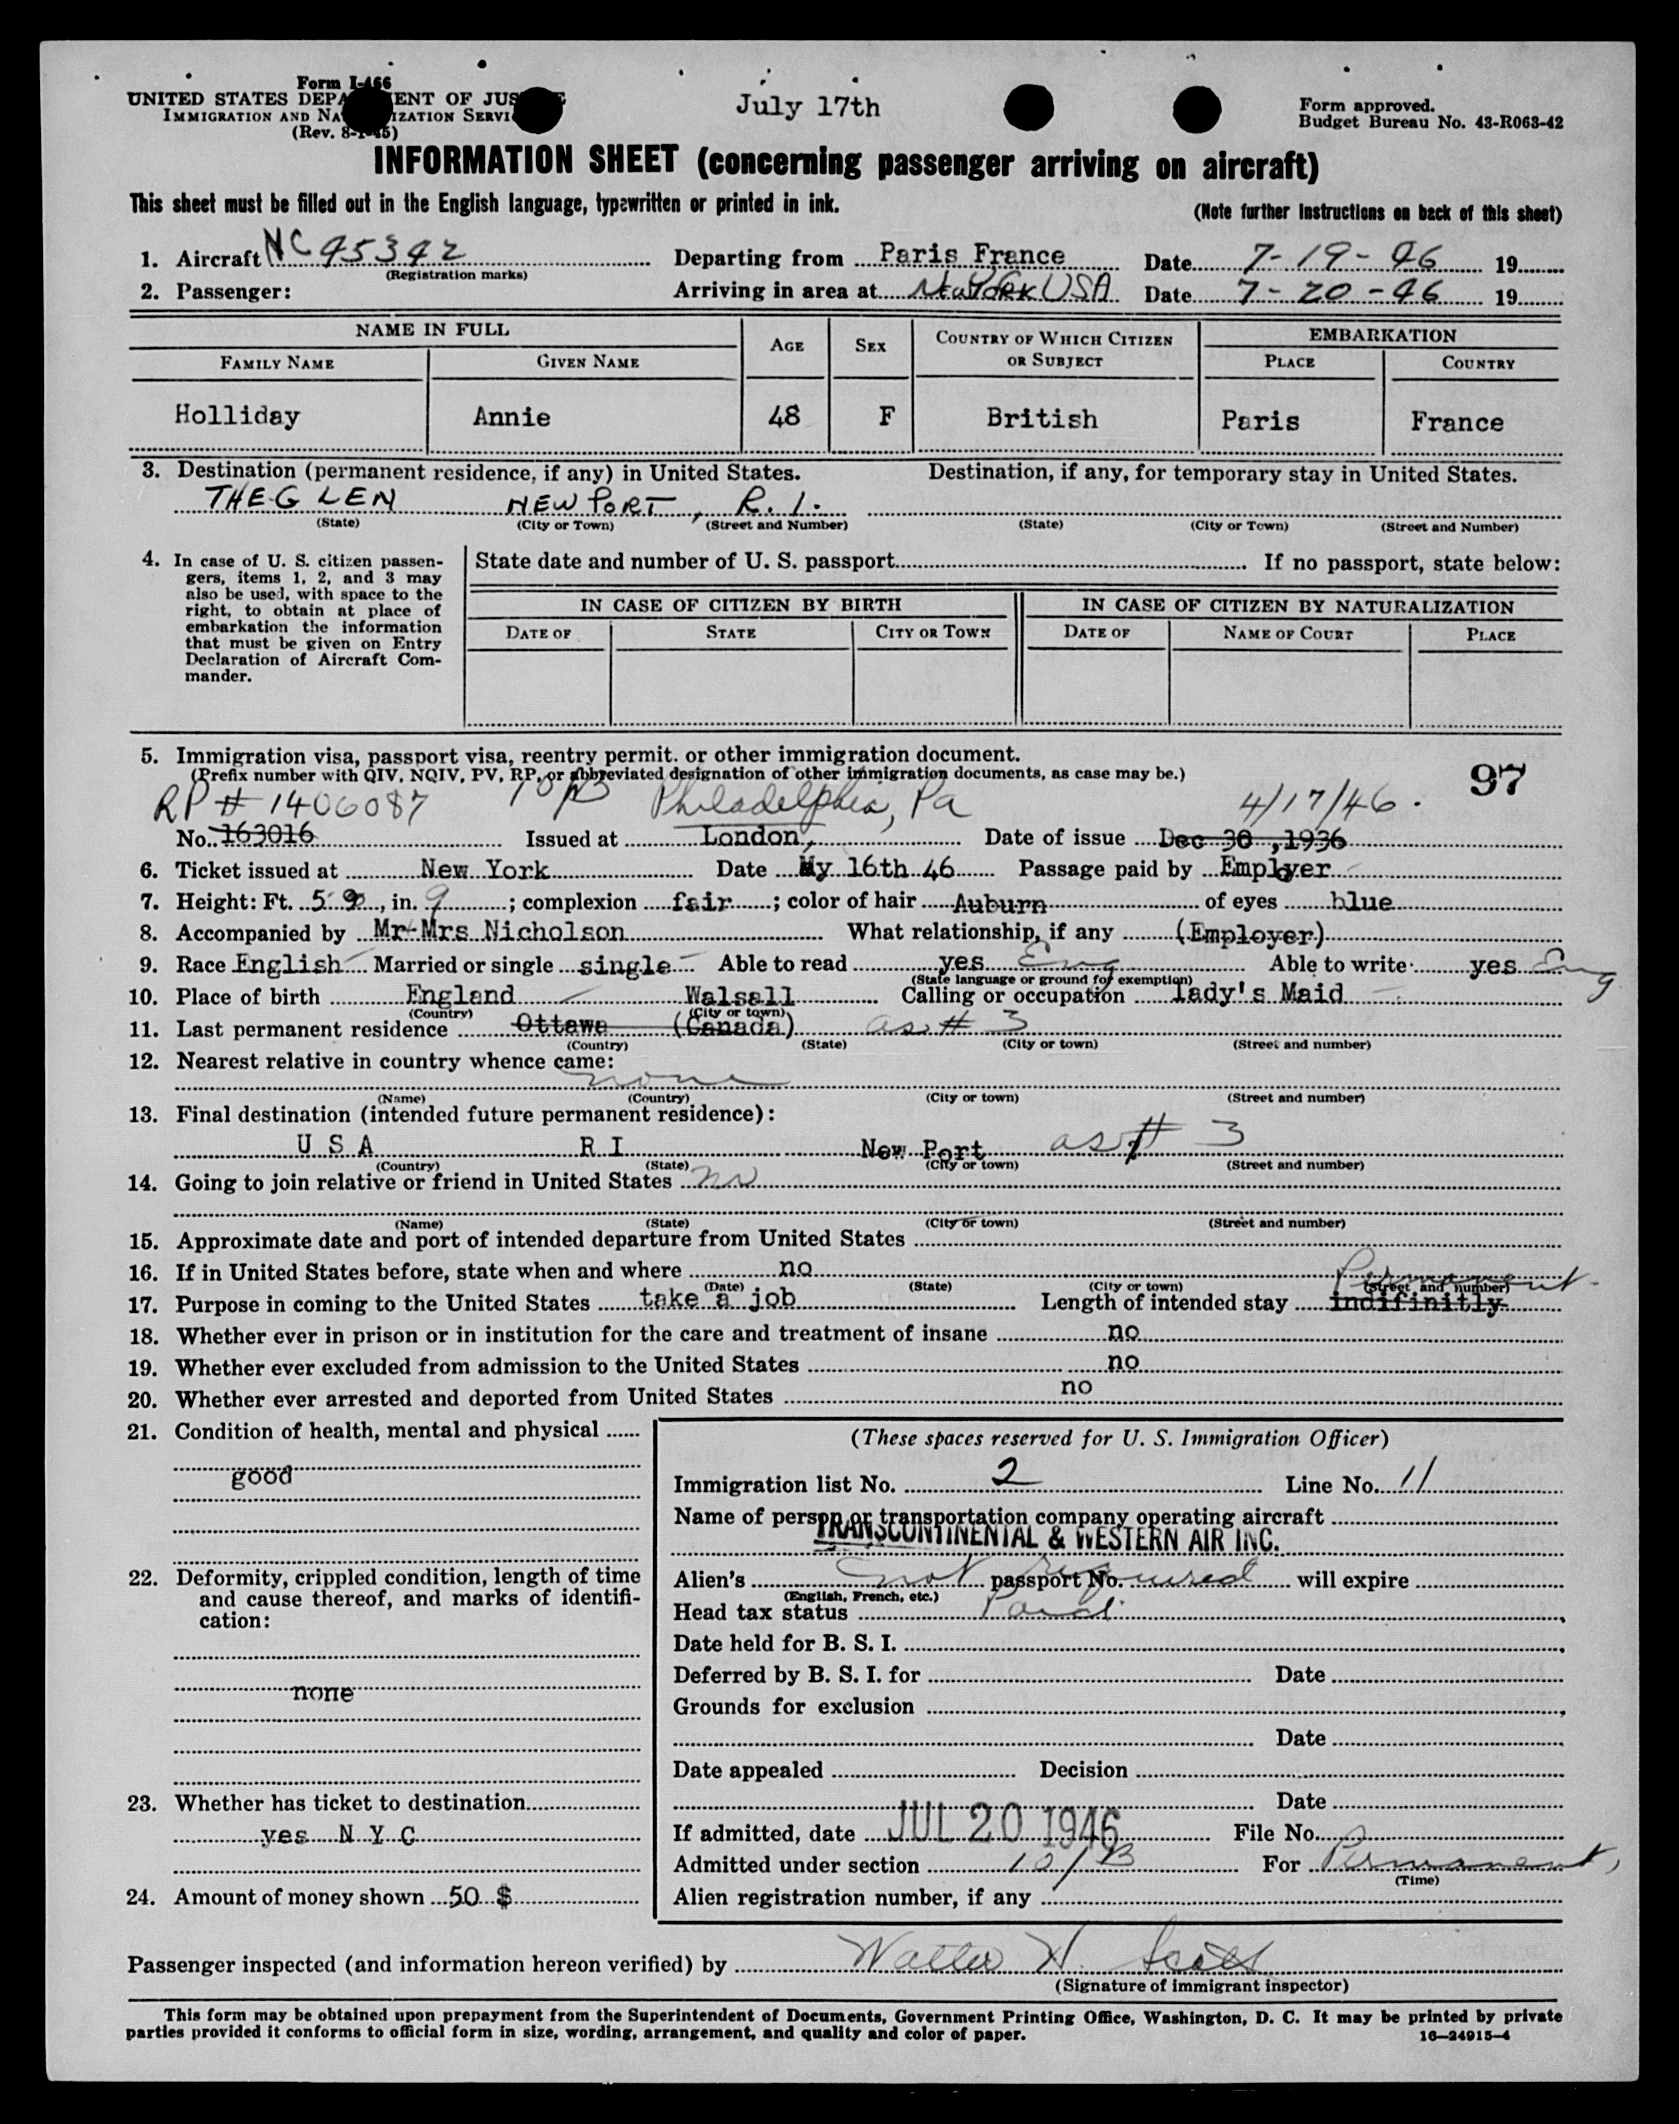 Form I-466
UNITED STATES DEPARTMENT OF JUSTICE
IMMIGRATION AND NATURALIZATION SERVICE
(Rev. 8-1-45)
July 17th
Form approved.
Budget Bureau No. 43-R063-42
INFORMATION SHEET (concerning passenger arriving on aircraft)
This sheet must be filled out in the English language, typewritten or printed in ink.
(Note further instructions on back of this sheet)
1. Aircraft NC 95342 Departing from Paris France Date 7-19-46 19
(Registration marks)
2. Passenger: Arriving in area at New York USA Date 7-20-46 19
NAME IN FULL AGE SEX COUNTRY OF WHICH CITIZEN OR SUBJECT EMBARKATION
FAMILY NAME GIVEN NAME PLACE COUNTRY
Holliday Annie 48 F British Paris France
3. Destination (permanent residence, if any) in United States. Destination, if any, for temporary stay in United States.
THE GLEN NEWPORT, R.I.
(State) (City or Town) (Street and Number) (State) (City or Town) (Street and Number)
4. In case of U. S. citizen passen-
gers, items 1, 2, and 3 may
also be used, with space to the
right, to obtain at place of
embarkation the information
that must be given on Entry
Declaration of Aircraft Com-
mander.
State date and number of U. S. passport If no passport, state below:
IN CASE OF CITIZEN BY BIRTH IN CASE OF CITIZEN BY NATURALIZATION
DATE OF STATE CITY OR TOWN DATE OF NAME OF COURT PLACE
5. Immigration visa, passport visa, reentry permit, or other immigration document.
(Prefix number with QIV, NQIV, PV, RP, or abbreviated designation of other immigration documents, as case may be.)
97
RP # 1406087 10/B Philadelphia, Pa 4/17/46.
No. 163016 Issued at London, Date of issue Dec 30, 1936
6. Ticket issued at New York Date My 16th 46 Passage paid by Employer
7. Height: Ft. 5 9, in. 9; complexion fair; color of hair Auburn of eyes blue
8. Accompanied by Mr-Mrs Nicholson What relationship, if any (Employer)
9. Race English Married or single single Able to read yes Eng Able to write yes Eng
(State language or ground for exemption)
10. Place of birth England Walsall Calling or occupation lady's Maid
(Country) (City or town)
11. Last permanent residence Ottawa (Canada) as # 3
(Country) (State) (City or town) (Street and number)
12. Nearest relative in country whence came:
none
(Name) (Country) (City or town) (Street and number)
13. Final destination (intended future permanent residence):
U S A R I New Port as # 3
(Country) (State) (City or town) (Street and number)
14. Going to join relative or friend in United States no
(Name) (State) (City or town) (Street and number)
15. Approximate date and port of intended departure from United States
16. If in United States before, state when and where no
(Date) (State) (City or town) (Street and number)
Permanent
17. Purpose in coming to the United States take a job Length of intended stay indifinitly
18. Whether ever in prison or in institution for the care and treatment of insane no
19. Whether ever excluded from admission to the United States no
20. Whether ever arrested and deported from United States no
21. Condition of health, mental and physical
good
22. Deformity, crippled condition, length of time
and cause thereof, and marks of identifi-
cation:
none
23. Whether has ticket to destination
yes N Y C
24. Amount of money shown 50 $
(These spaces reserved for U. S. Immigration Officer)
Immigration list No. 2 Line No. 11
Name of person or transportation company operating aircraft
TRANSCONTINENTAL & WESTERN AIR INC.
Alien's not passport No. required will expire
(English, French, etc.)
Head tax status Paid
Date held for B. S. I.
Deferred by B. S. I. for Date
Grounds for exclusion
Date
Date appealed Decision
Date
If admitted, date JUL 20 1946 File No.
Admitted under section 10/B For Permanent
(Time)
Alien registration number, if any
Passenger inspected (and information hereon verified) by Walter H. Scott
(Signature of immigrant inspector)
This form may be obtained upon prepayment from the Superintendent of Documents, Government Printing Office, Washington, D. C. It may be printed by private
parties provided it conforms to official form in size, wording, arrangement, and quality and color of paper. 16—24915-4